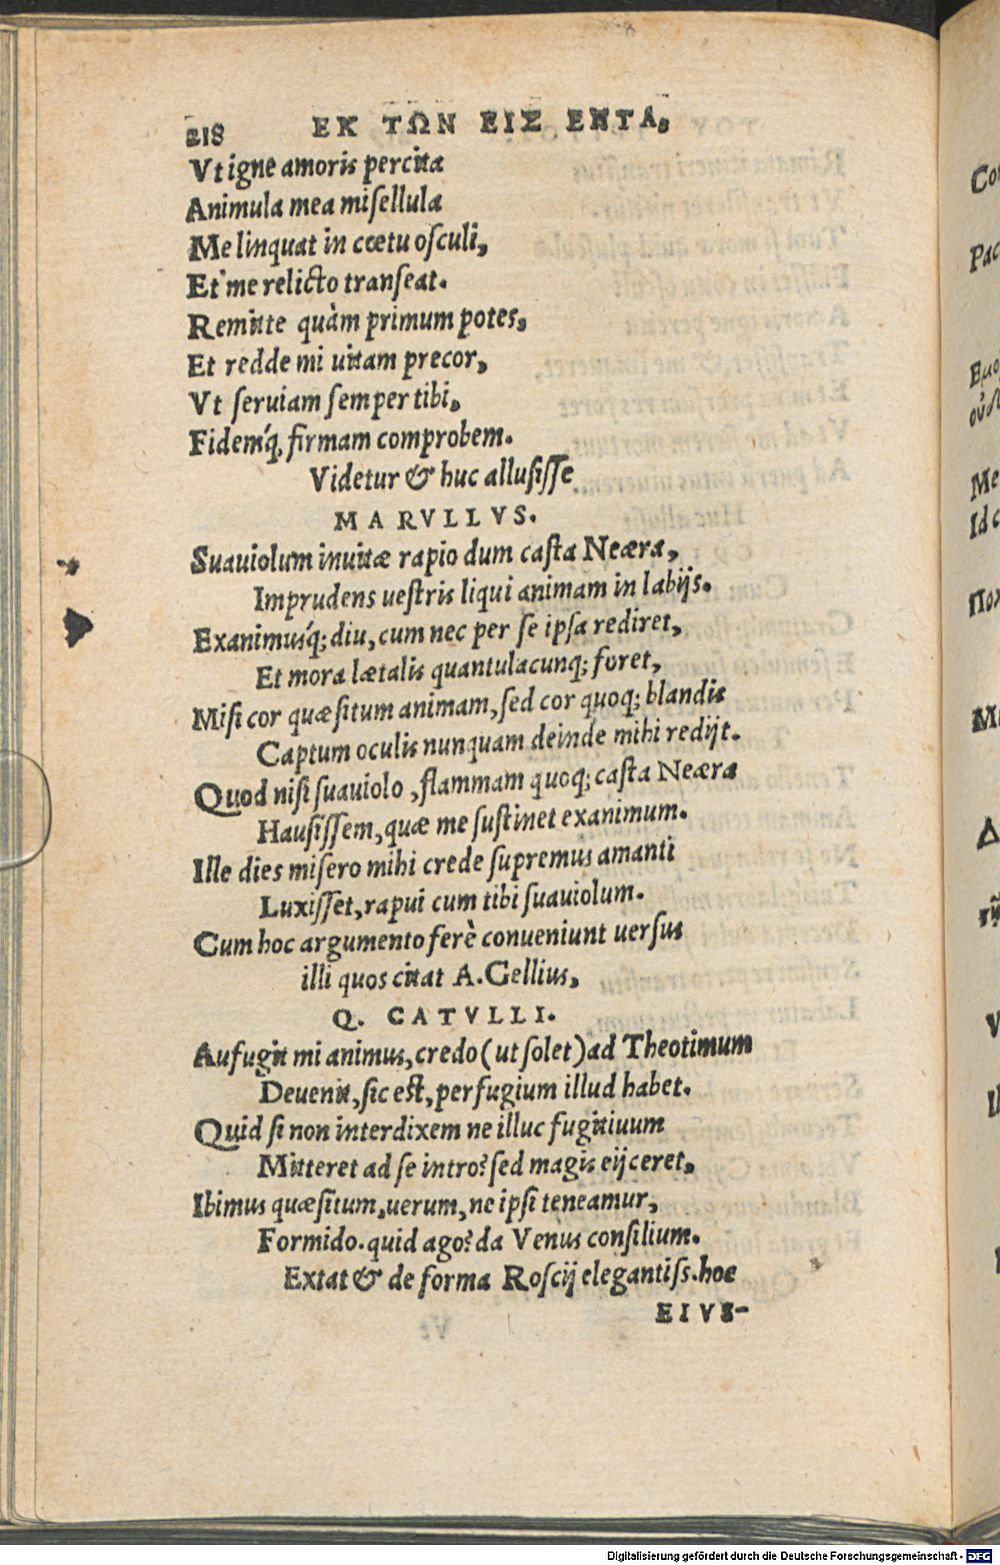 218 ΕΚ ΤΩΝ ΕΙΣ ΕΝΤΑ,
Vt igne amoris percita
Animula mea misellula
Me linquat in cœtu osculi,
Et me relicto transeat.
Remitte quàm primum potes,
Et redde mi uitam precor,
Vt seruiam semper tibi,
Fidemq́; firmam comprobem.
Videtur & huc allusisse
MARVLLVS.
Suauiolum inuitæ rapio dum casta Neæra,
Imprudens uestris liqui animam in labijs.
Exanimusq́; diu, cum nec per se ipsa rediret,
Et mora lætalis quantulacunq; foret,
Misi cor quæsitum animam, sed cor quoq; blandis
Captum oculis nunquam deinde mihi redijt.
Quod nisi suauiolo, flammam quoq; casta Neæra
Hausissem, quæ me sustinet exanimum.
Ille dies misero mihi crede supremus amanti
Luxisset, rapui cum tibi suauiolum.
Cum hoc argumento ferè conueniunt uersus
illi quos citat A. Gellius,
Q. CATVLLI.
Aufugit mi animus, credo (ut solet) ad Theotimum
Deuenit, sic est, perfugium illud habet.
Quid si non interdixem ne illuc fugitiuum
Mitteret ad se intro? sed magis eijceret,
Ibimus quæsitum, uerum, ne ipsi teneamur,
Formido. quid ago? da Venus consilium.
Extat & de forma Roscij elegantiss. hoc
EIVS-
Co
Pac
Εμο
Me
Id c
Πολ
Digitalisierung gefördert durch die Deutsche Forschungsgemeinschaft - DFG